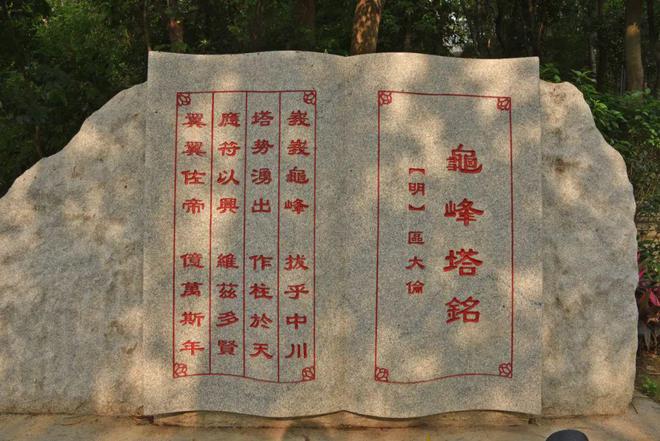 龜峰塔銘
【明】區大倫
峩峩龜峰 拔乎中川
塔势湧出 作柱於天
應符以興 維茲多賢
翼翼佐帝 億萬斯年